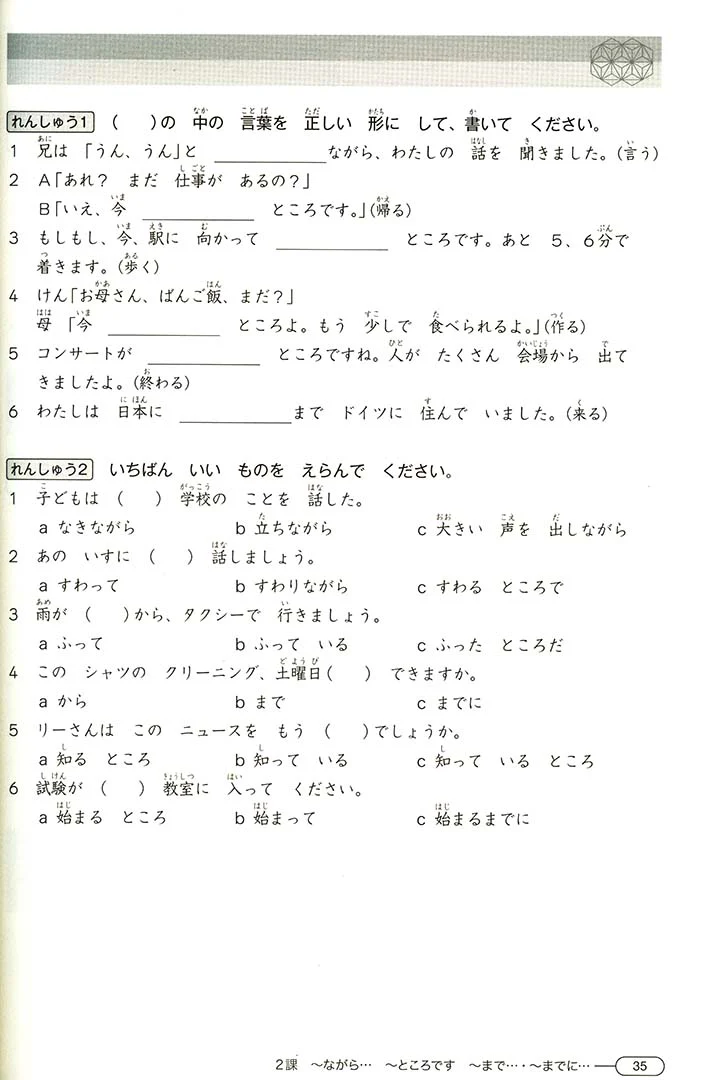 れんしゅう1 (　　)の 中の 言葉を 正しい 形に して、書いて ください。
1 兄は 「うん、うん」と ＿＿＿＿＿＿ながら、わたしの 話を 聞きました。(言う)
2 A「あれ？ まだ 仕事が あるの？」
B「いえ、今 ＿＿＿＿＿＿ ところです。」(帰る)
3 もしもし、今、駅に 向かって ＿＿＿＿＿＿ ところです。あと 5、6分で
着きます。(歩く)
4 けん「お母さん、ばんご飯、まだ？」
母 「今 ＿＿＿＿＿＿ ところよ。もう 少しで 食べられるよ。」(作る)
5 コンサートが ＿＿＿＿＿＿ ところですね。人が たくさん 会場から 出て
きましたよ。(終わる)
6 わたしは 日本に ＿＿＿＿＿＿まで ドイツに 住んで いました。(来る)
れんしゅう2 いちばん いい ものを えらんで ください。
1 子どもは (　　) 学校の ことを 話した。
a なきながら b 立ちながら c 大きい 声を 出しながら
2 あの いすに (　　) 話しましょう。
a すわって b すわりながら c すわる ところで
3 雨が (　　)から、タクシーで 行きましょう。
a ふって b ふって いる c ふった ところだ
4 この シャツの クリーニング、土曜日(　　) できますか。
a から b まで c までに
5 リーさんは この ニュースを もう (　　)でしょうか。
a 知る ところ b 知って いる c 知って いる ところ
6 試験が (　　) 教室に 入って ください。
a 始まる ところ b 始まって c 始まるまでに
2課 ～ながら… ～ところです ～まで…・～までに… 35